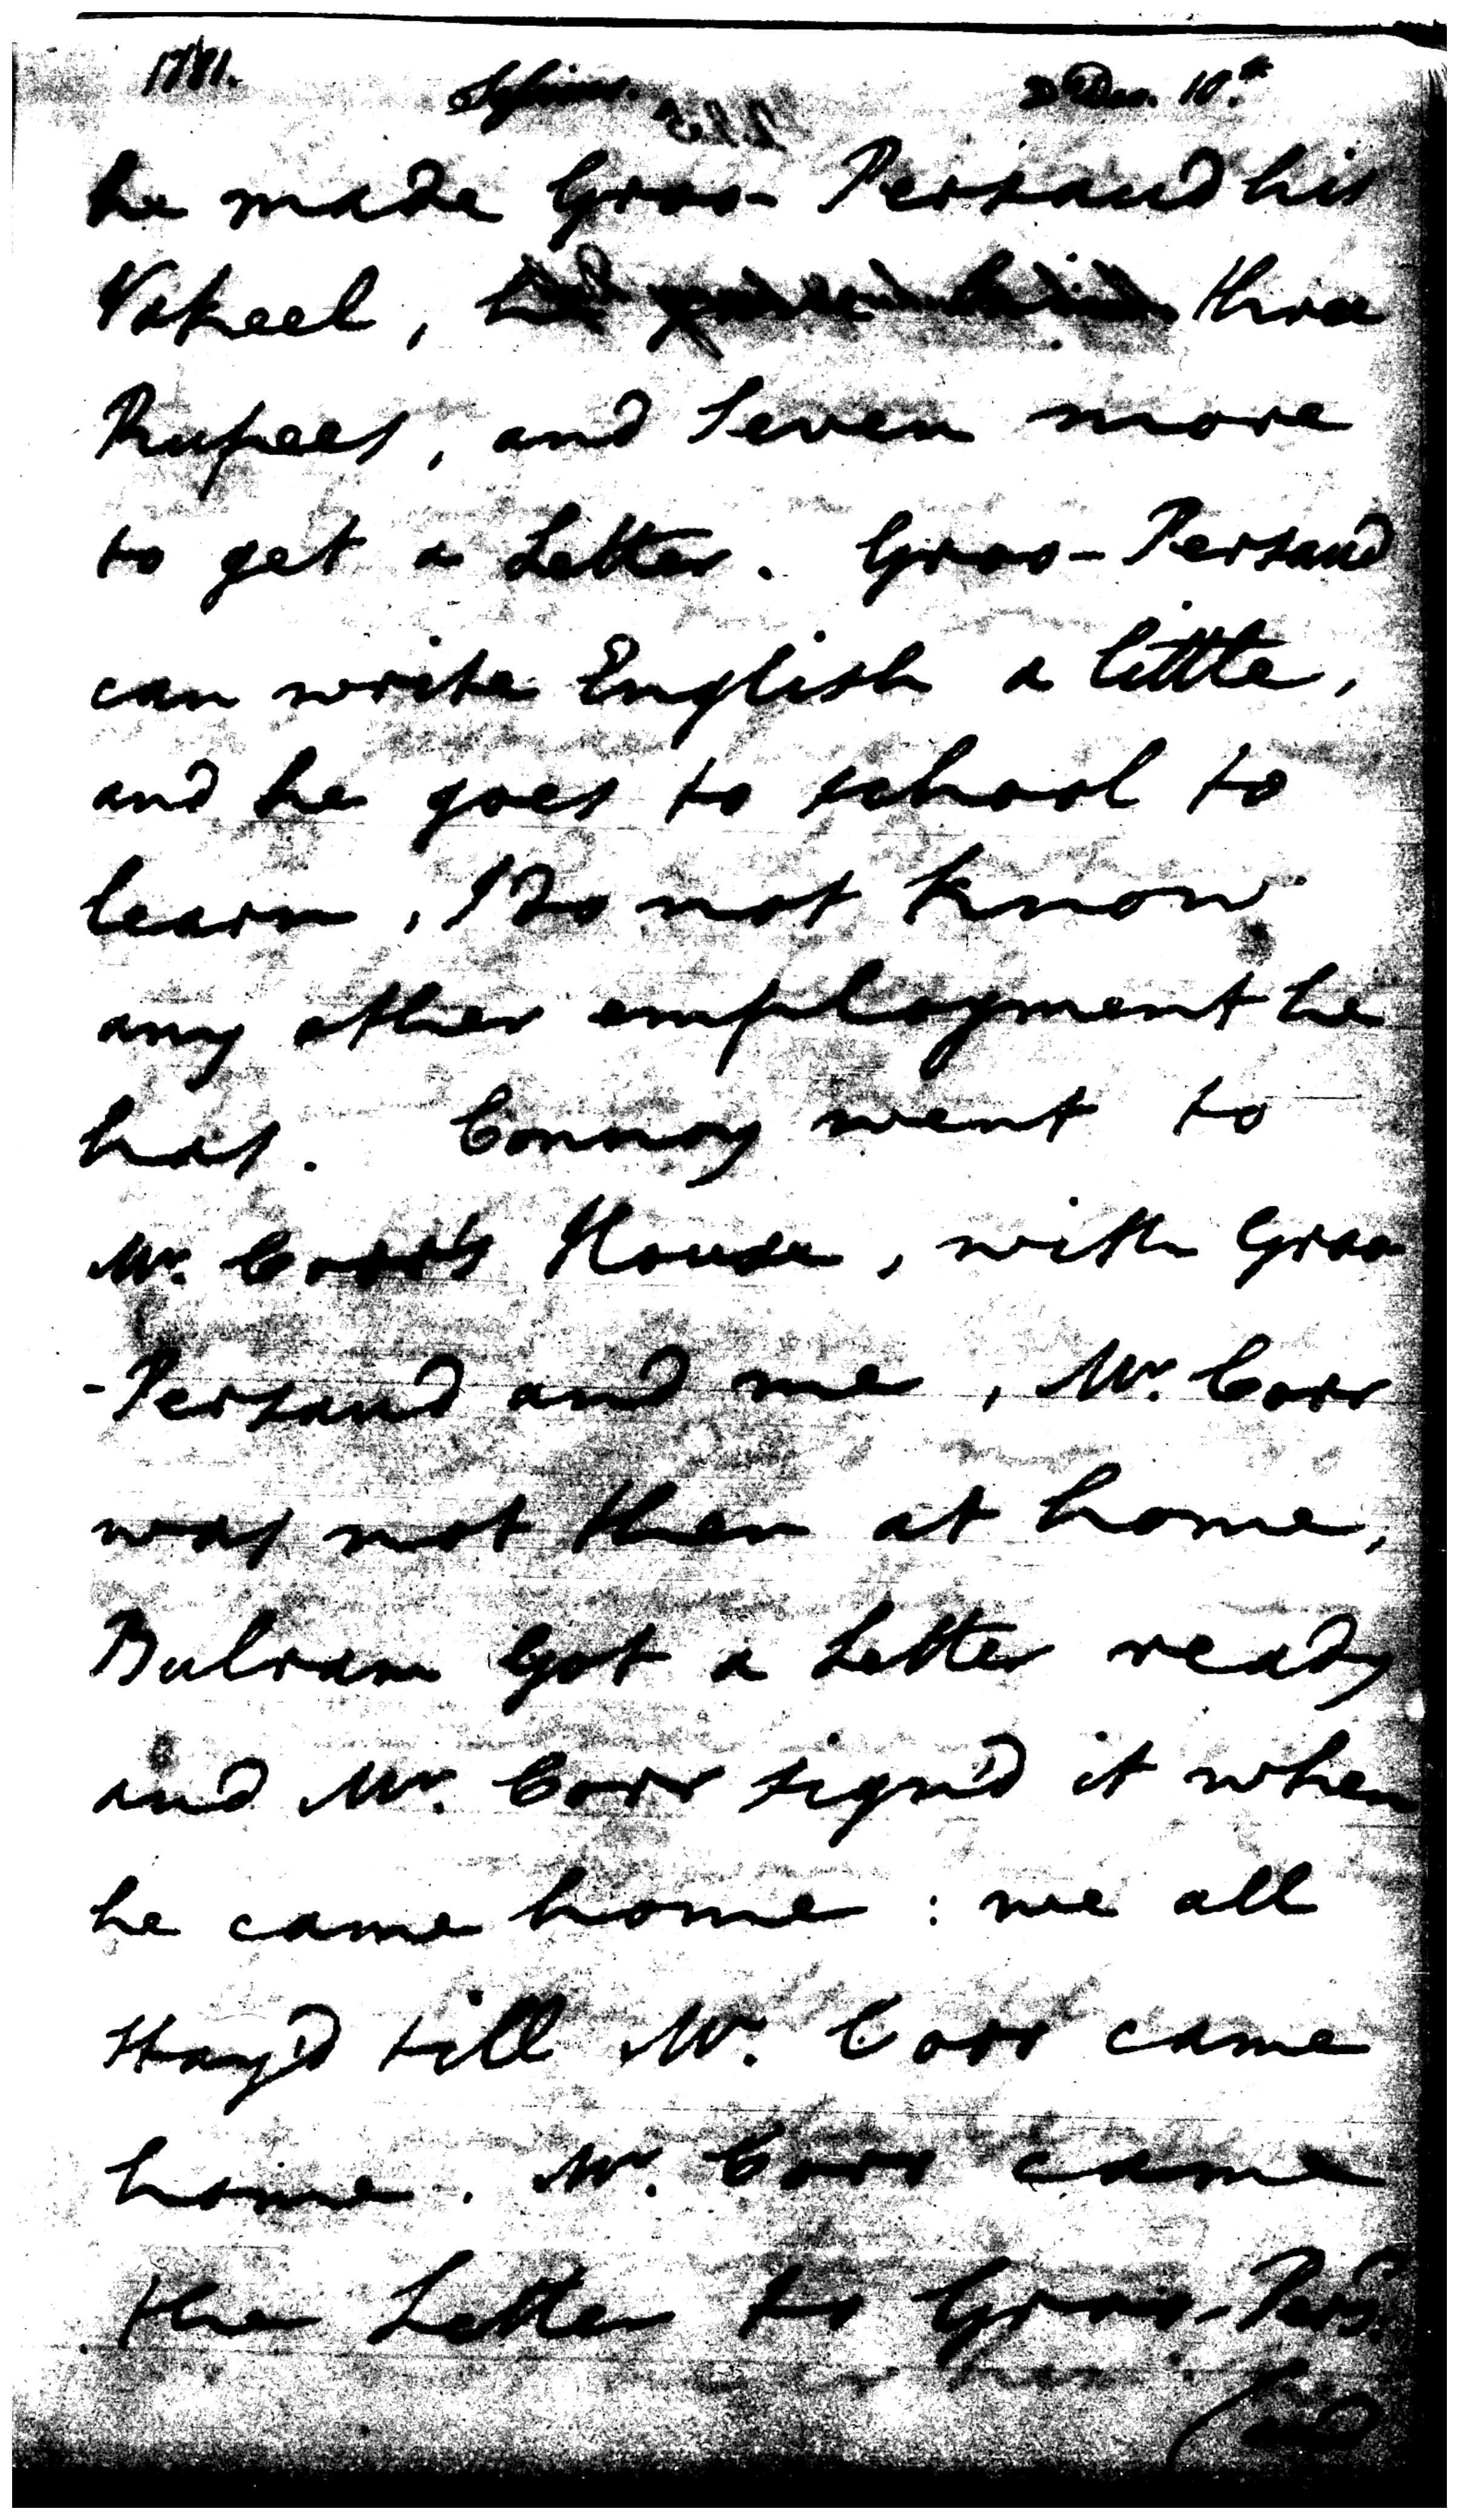 1781. Decr. 10th
he made Groo-Persaud his
Vakeel, three
Rupees, and Seven more
to get a Letter. Groo-Persaud
can write English a little,
and he goes to school to
learn, I do not know
any other employment he
has. Connoy went to
Mr. Corr's House, with Groo
-Persaud and me, Mr. Corr
was not then at home,
Bulram got a Letter ready
and Mr. Corr sign'd it when
he came home : we all
Stay'd till Mr. Corr came
home. Mr. Corr came
the Letter to Groo-Pers: